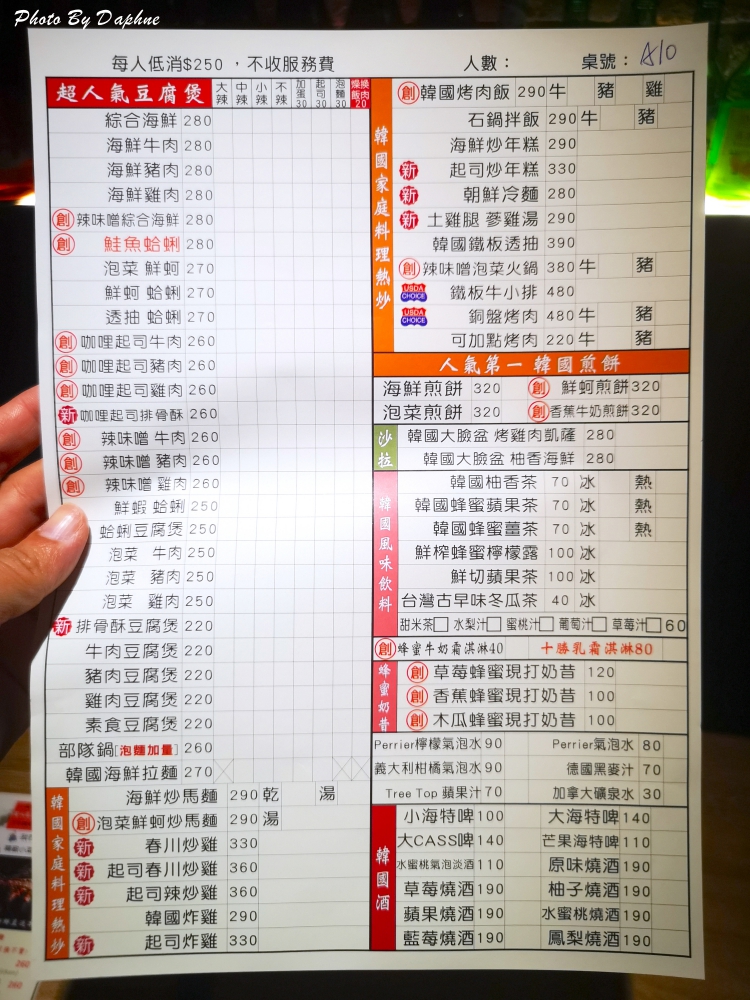 Photo By Daphne
每人低消$250 ，不收服務費 人數： 桌號： A10
超人氣豆腐煲 大辣 中辣 小辣 不辣 加蛋30 起司30 泡麵30 燥飯換肉20
綜合海鮮 280
海鮮牛肉 280
海鮮豬肉 280
海鮮雞肉 280
創 辣味噌綜合海鮮 280
創 鮭魚蛤蜊 280
泡菜 鮮蚵 270
鮮蚵 蛤蜊 270
透抽 蛤蜊 270
創 咖哩起司牛肉 260
創 咖哩起司豬肉 260
創 咖哩起司雞肉 260
新 咖哩起司排骨酥 260
創 辣味噌 牛肉 260
創 辣味噌 豬肉 260
創 辣味噌 雞肉 260
鮮蝦 蛤蜊 250
蛤蜊豆腐煲 250
泡菜 牛肉 250
泡菜 豬肉 250
泡菜 雞肉 250
新 排骨酥豆腐煲 220
牛肉豆腐煲 220
豬肉豆腐煲 220
雞肉豆腐煲 220
素食豆腐煲 220
部隊鍋[泡麵加量] 260
韓國海鮮拉麵 270
韓國家庭料理熱炒
海鮮炒馬麵 290 乾 湯
創 泡菜鮮蚵炒馬麵 290 湯
新 春川炒雞 330
新 起司春川炒雞 360
新 起司辣炒雞 360
韓國炸雞 290
新 起司炸雞 330
韓國家庭料理熱炒
創 韓國烤肉飯 290 牛 豬 雞
石鍋拌飯 290 牛 豬
海鮮炒年糕 290
新 起司炒年糕 330
新 朝鮮冷麵 280
新 土雞腿 蔘雞湯 290
韓國鐵板透抽 390
創 辣味噌泡菜火鍋 380 牛 豬
USDA CHOICE 鐵板牛小排 480
USDA CHOICE 銅盤烤肉 480 牛 豬
可加點烤肉 220 牛 豬
人氣第一 韓國煎餅
海鮮煎餅 320 創 鮮蚵煎餅 320
泡菜煎餅 320 創 香蕉牛奶煎餅 320
沙拉
韓國大臉盆 烤雞肉凱薩 280
韓國大臉盆 柚香海鮮 280
韓國風味飲料
韓國柚香茶 70 冰 熱
韓國蜂蜜蘋果茶 70 冰 熱
韓國蜂蜜薑茶 70 冰 熱
鮮榨蜂蜜檸檬露 100 冰
鮮切蘋果茶 100 冰
台灣古早味冬瓜茶 40 冰
甜米茶□ 水梨汁□ 蜜桃汁□ 葡萄汁□ 草莓汁□ 60
創 蜂蜜牛奶霜淇淋40 十勝乳霜淇淋80
蜂蜜奶昔
創 草莓蜂蜜現打奶昔 120
創 香蕉蜂蜜現打奶昔 100
創 木瓜蜂蜜現打奶昔 100
Perrier檸檬氣泡水 90 Perrier氣泡水 80
義大利柑橘氣泡水 90 德國黑麥汁 70
Tree Top 蘋果汁 70 加拿大礦泉水 30
韓國酒
小海特啤 100 大海特啤 140
大CASS啤 140 芒果海特啤 110
水蜜桃氣泡淡酒 110 原味燒酒 190
草莓燒酒 190 柚子燒酒 190
蘋果燒酒 190 水蜜桃燒酒 190
藍莓燒酒 190 鳳梨燒酒 190